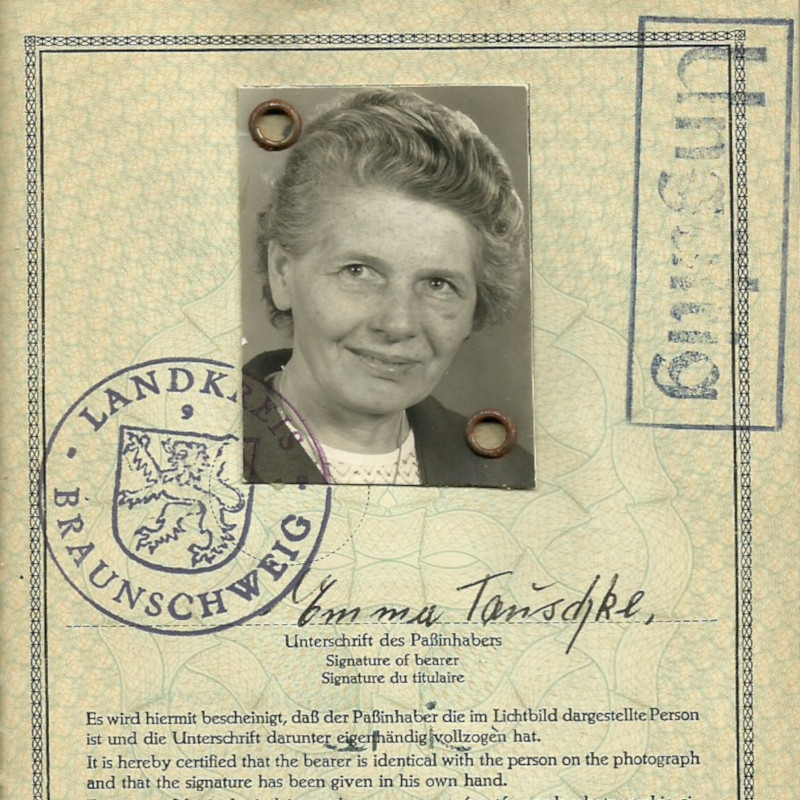 Ungültig
LANDKREIS
9
BRAUNSCHWEIG
Emma Tauschke,
Unterschrift des Paßinhabers
Signature of bearer
Signature du titulaire
Es wird hiermit bescheinigt, daß der Paßinhaber die im Lichtbild dargestellte Person
ist und die Unterschrift darunter eigenhändig vollzogen hat.
It is hereby certified that the bearer is identical with the person on the photograph
and that the signature has been given in his own hand.